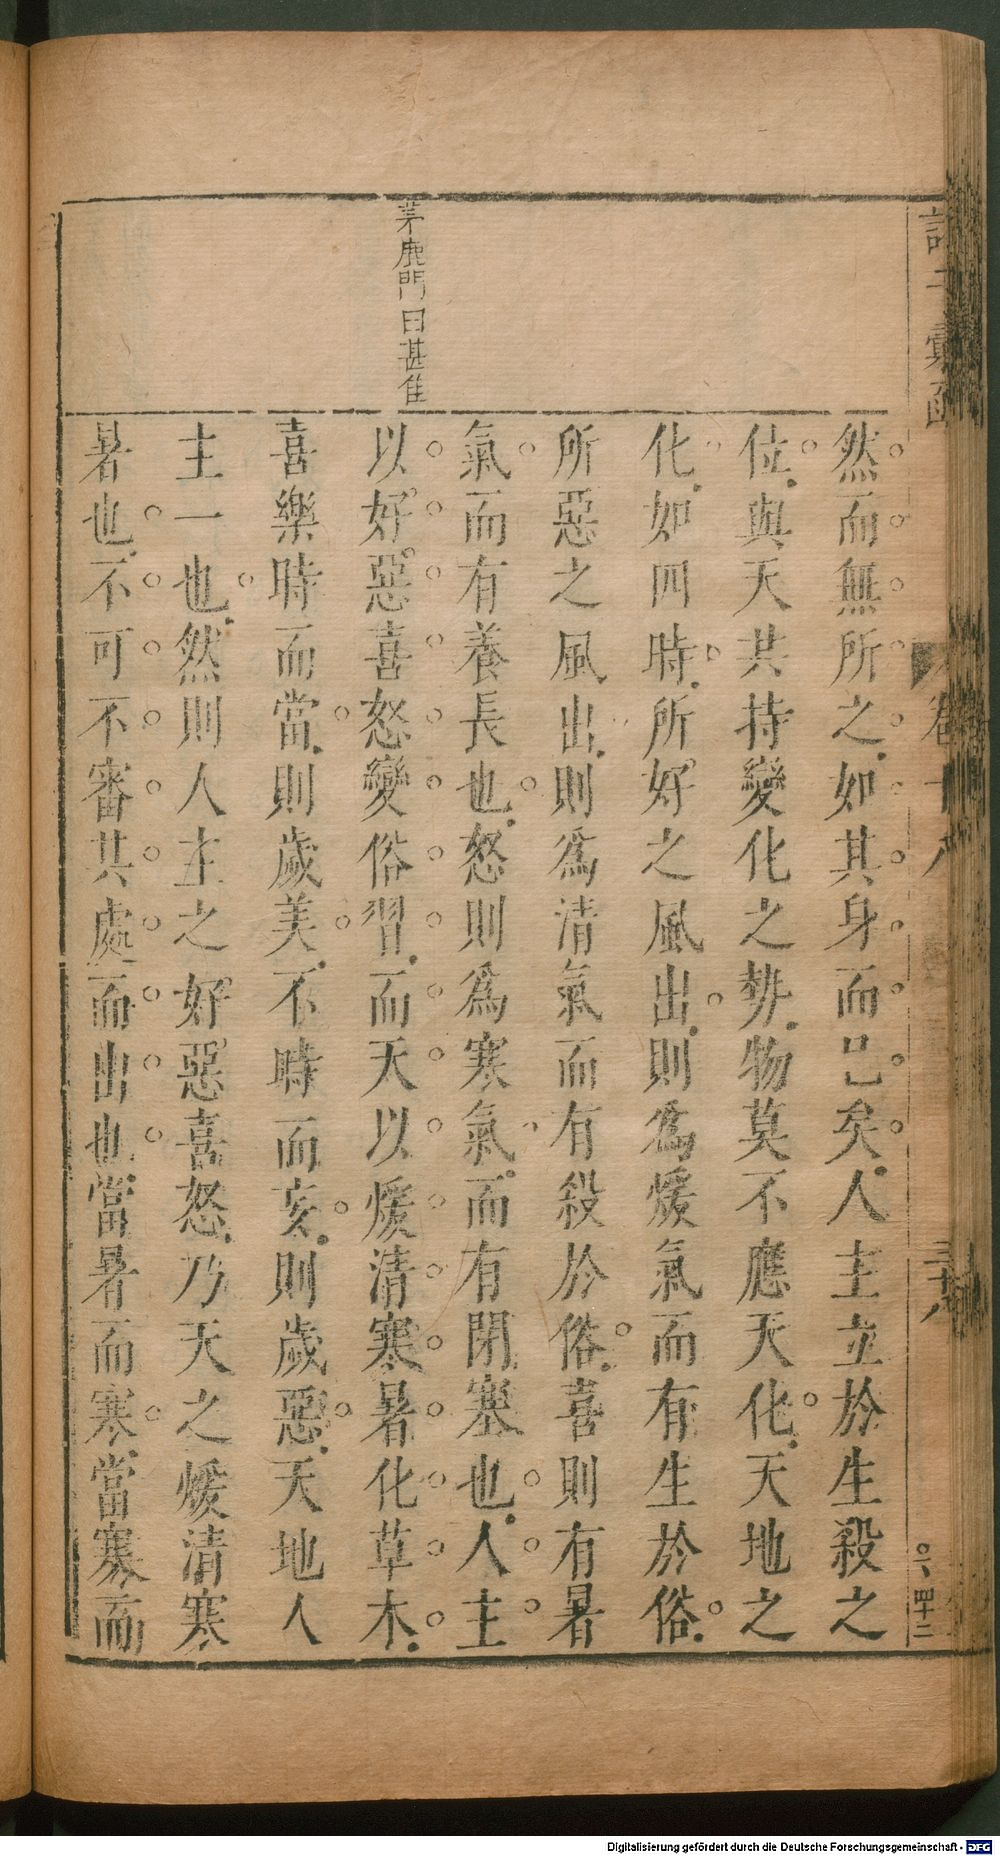 卷十八
三十八
四十二
茅鹿門曰甚佳
然而無所之如其身而已矣人主立於生殺之
位與天共持變化之勢物莫不應天化天地之
化如四時所好之風出則爲煖氣而有生於俗
所惡之風出則爲清氣而有殺於俗喜則有暑
氣而有養長也怒則爲寒氣而有閉塞也人主
以好惡喜怒變俗習而天以煖清寒暑化草木
喜樂時而當則歲美不時而妄則歲惡天地人
主一也然則人主之好惡喜怒乃天之煖清寒
暑也不可不審其處而出也當暑而寒當寒而
Digitalisierung gefördert durch die Deutsche Forschungsgemeinschaft - DFG